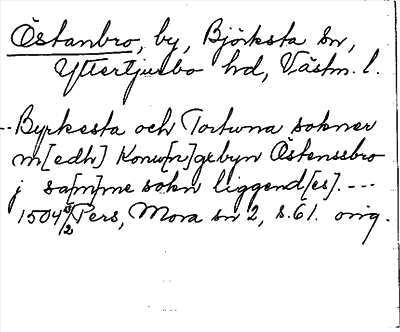 Östanbro, by, Björksta sn,
Yttertjurbo hd, Västm. l.
--Byrkesta och Tortuna sokner
m[edh] Konu[n]gxbyn Östenssbro
j sa[m]me sokn liggend[es]. ---
1504 5/2 Pers, Mora sn 2, s. 61. orig.